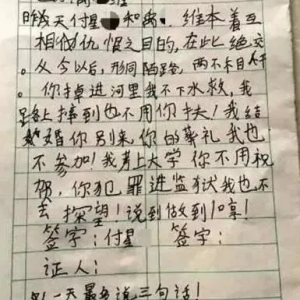 昨天付星和 维本着互
相仇恨之目的,在此绝交
。从今以后,形同陌路,两不相
你掉进河里我不下水救,我
路上摔到也不用你扶!我结
婚你别来,你的葬礼我也
不参加!我考上大学你不用祝
贺,你犯罪进监狱我也不
去探望!说到做到10享!
签字:付星 签字:
证人:
一天最多说三句话!